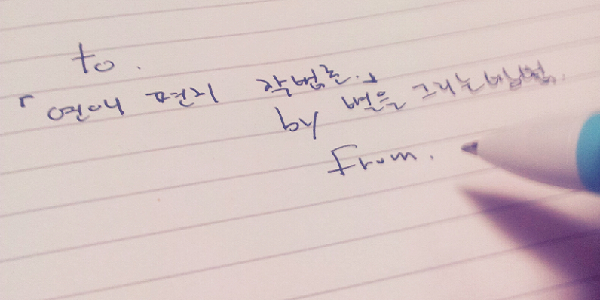 to.
「연애 편지 작법론」
by 별을 그리는 방법.
From.